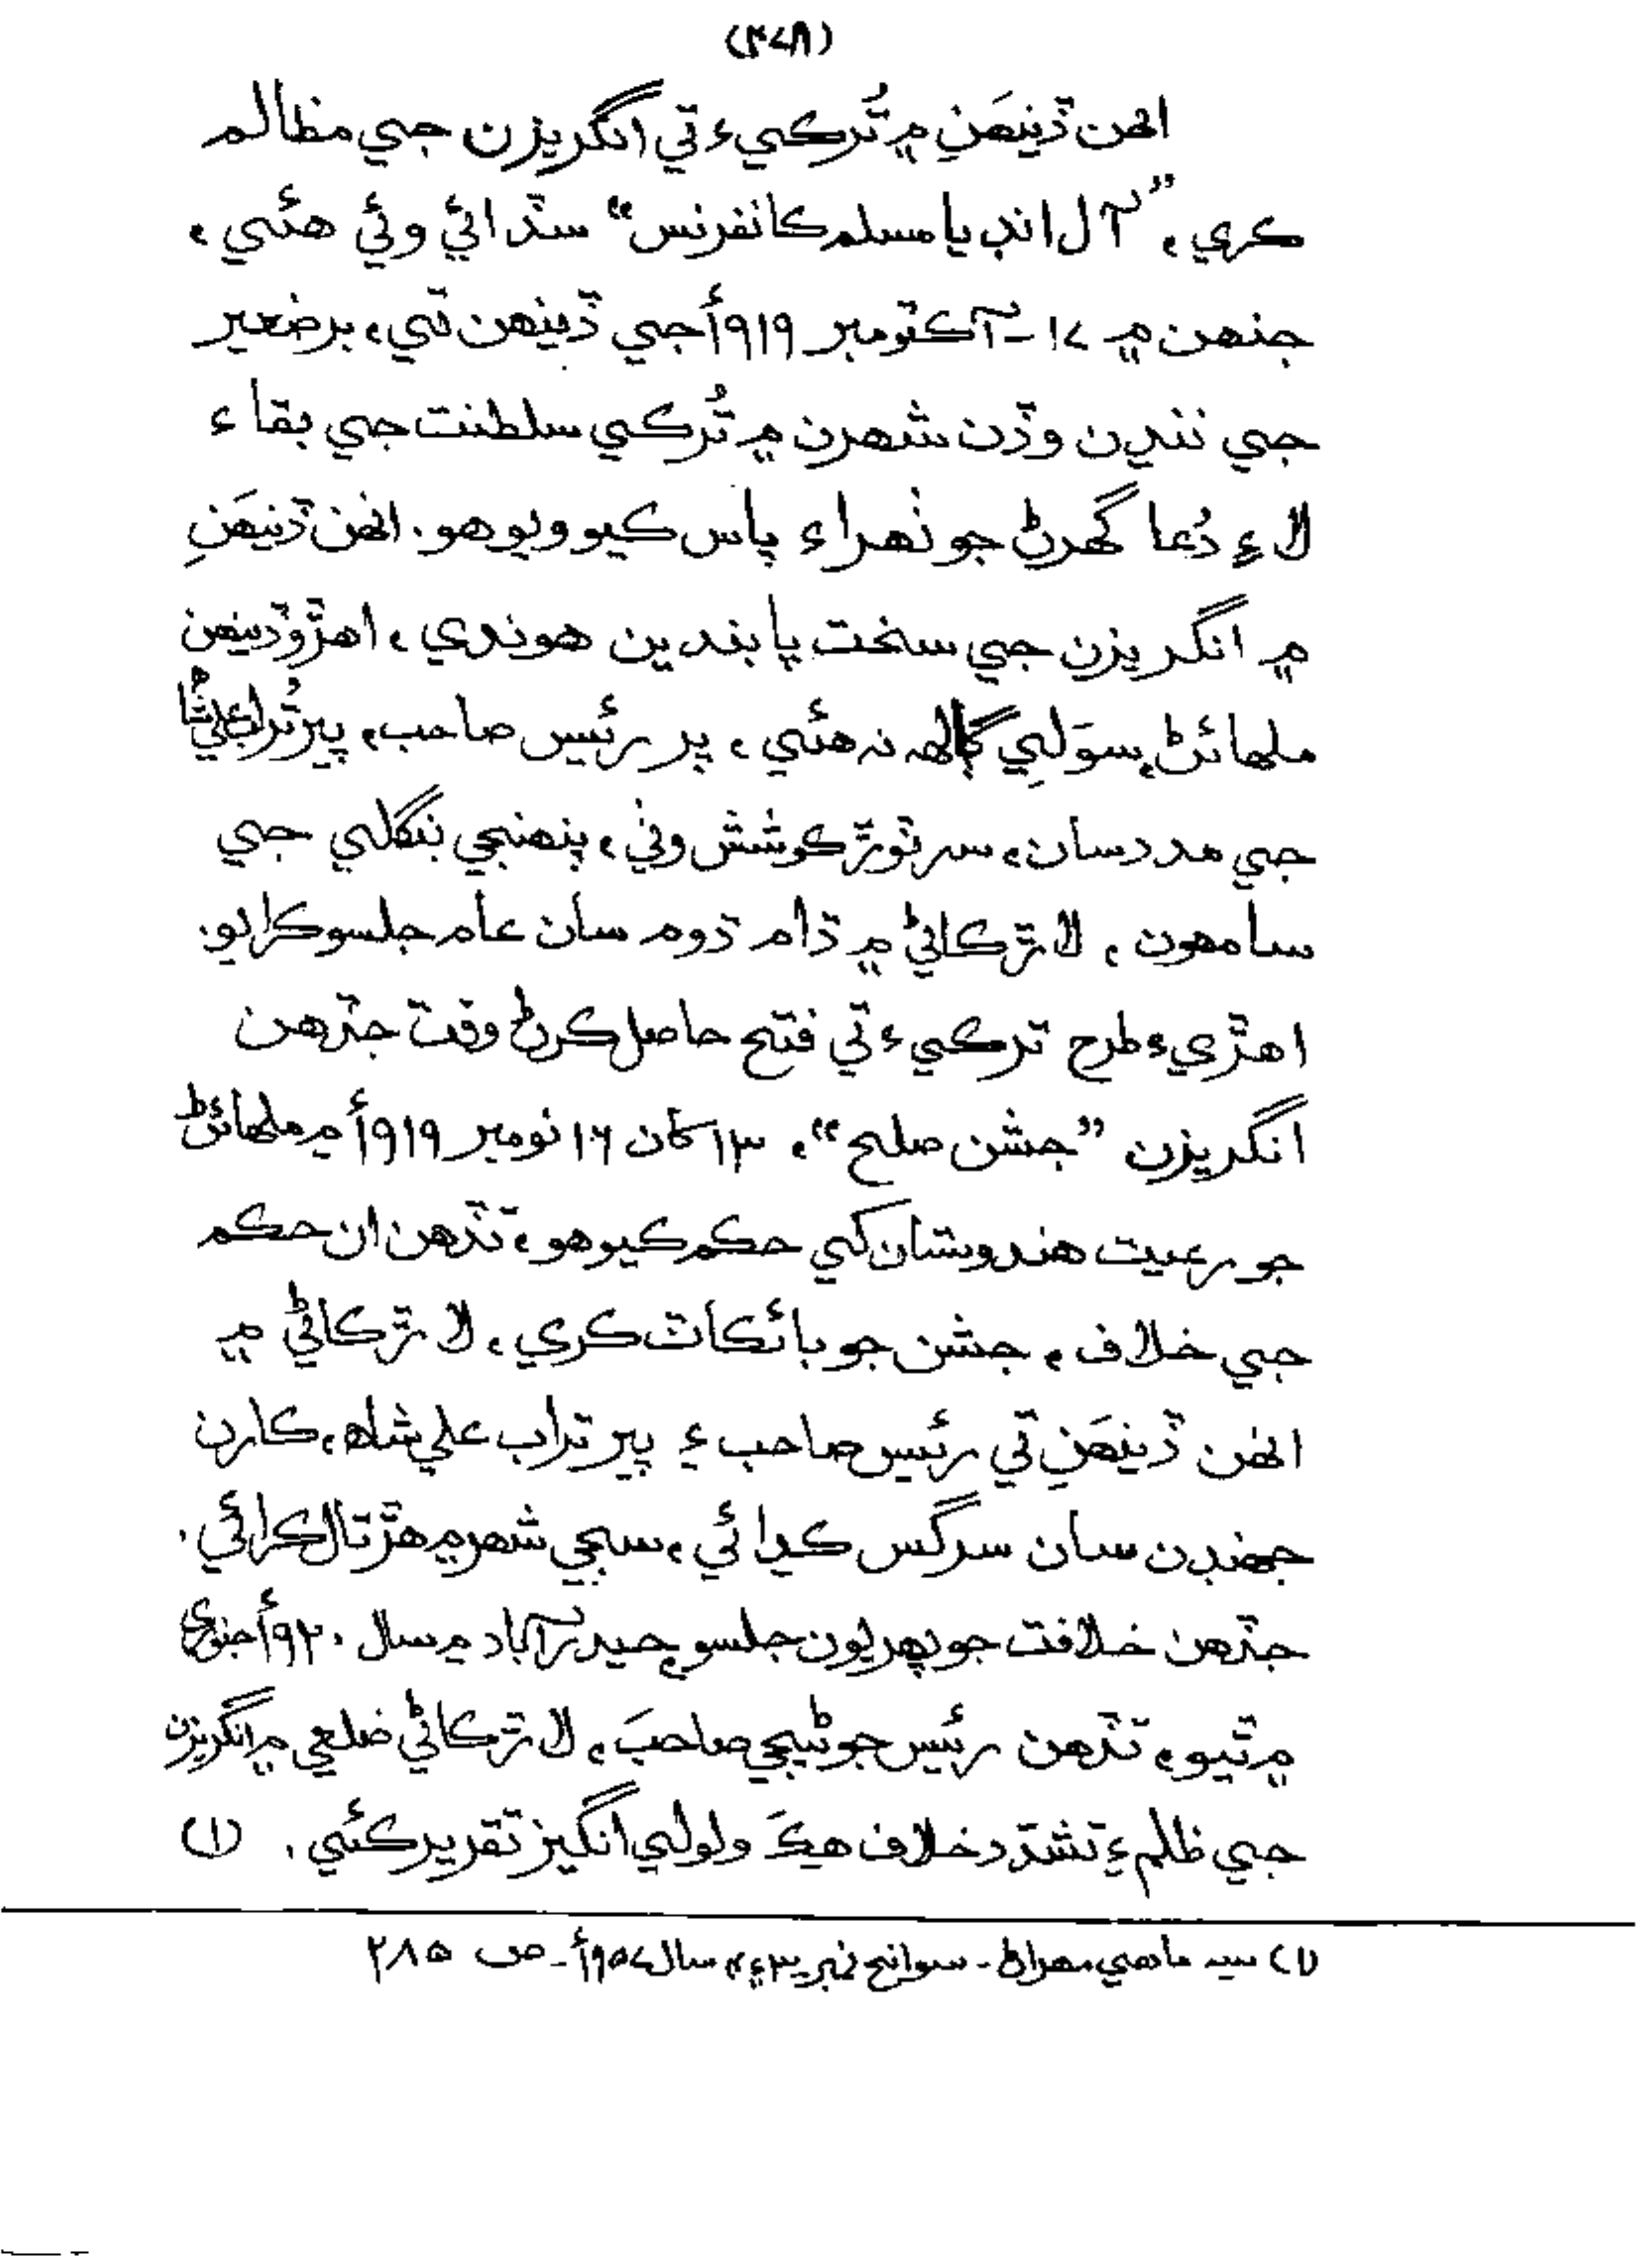 (۳۷۸)
انهن ڏينهَنِ ۾ تُرڪيءَ تي انگريزن جي مظالم
ڪري، ”آل انڊيا مسلم ڪانفرنس“ سڏائي وئي هئي،
جنهن ۾ ۱۷ـ آڪٽومبر ۱۹۱۹ع جي ڏينهن تي، برصغير
جي ننڍن وڏن شهرن ۾ تُرڪي سلطنت جي بقاء
لاءِ دُعا گهرڻ جو ٺهراءُ پاس ڪيو ويو هو. انهن ڏينهَنِ
۾ انگريزن جي سخت پابندين هوندي، اهڙو ڏينهن
ملهائڻ سوَلي ڳالهه نہ هئي، پر رئيس صاحب، پير تُراب علي شاهه
جي مدد سان، سر توڙ ڪوشش وٺي، پنهنجي بنگلي جي
سامهون، لاڙڪاڻي ۾ ڌام ڌوم سان عام جلسو ڪرايو.
اهڙيءَ طرح ترڪيءَ تي فتح حاصل ڪرڻ وقت جڏهن
انگريزن ”جشن صلح“، ۱۳ کان ۱۶ نومبر ۱۹۱۹ع ۾ ملهائڻ
جو رعيت هندوستان کي حڪم ڪيو هو، تڏهن ان حڪم
جي خلاف، جشن جو بائڪاٽ ڪري، لاڙڪاڻي ۾
انهن ڏينهَنِ تي رئيس صاحب ۽ پير تراب علي شاهه، ڪارن
جهنڊن سان سرگس ڪڍائي، سڄي شهر ۾ هڙتال ڪرائي.
جڏهن خلافت جو پهريون جلسو حيدرآباد ۾ سال ۱۹۲۰ع جنوري
۾ ٿيو، تڏهن رئيس جوڻيجي صاحبَ، لاڙڪاڻي ضلعي ۾ انگريزن
جي ظلم ۽ تشدّد خلاف هڪَ ولولي انگيز تقرير ڪئي. (۱)
(۱) سہ ماهي مهراڻ ـ سوانح نمبر ـ ۳ ۽ ۴ سال ۱۹۵۷ع ـ ص ۲۸۵